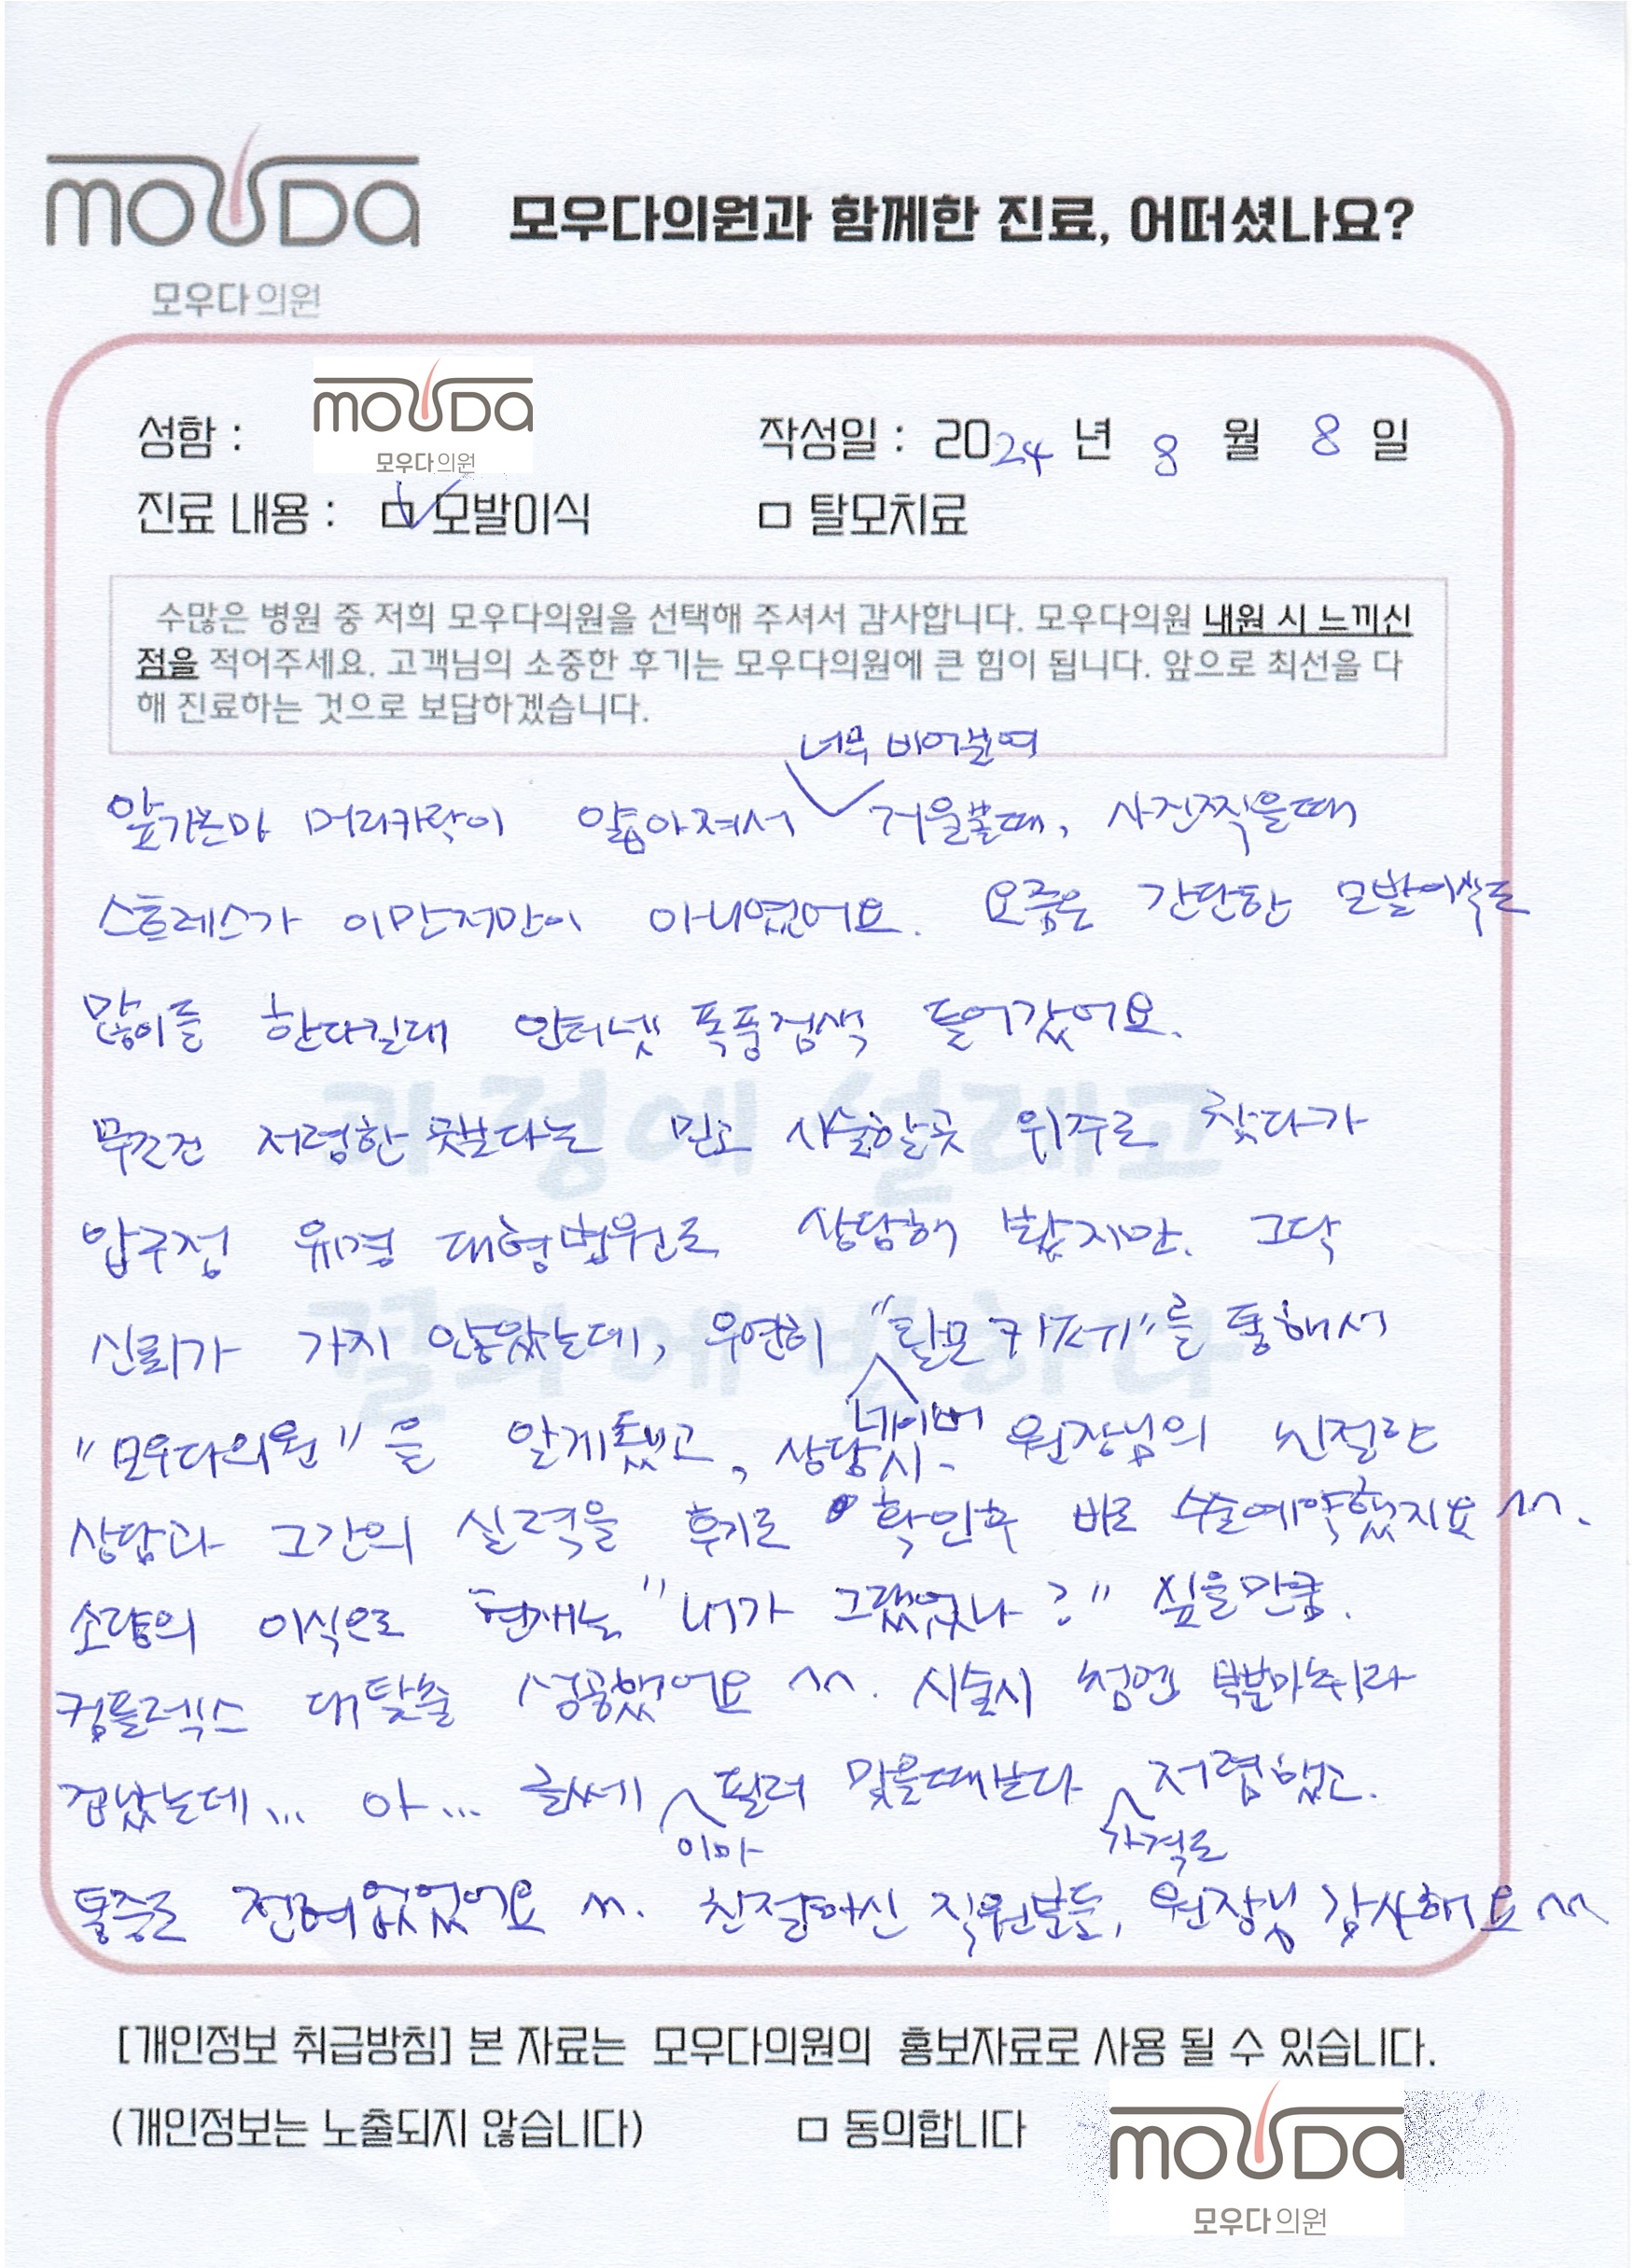 mouda
모우다의원
모우다의원과 함께한 진료, 어떠셨나요?
성함 : mouda 모우다의원
작성일 : 2024 년 8 월 8 일
진료 내용 : ☑ 모발이식 □ 탈모치료
수많은 병원 중 저희 모우다의원을 선택해 주셔서 감사합니다. 모우다의원 내원 시 느끼신
점을 적어주세요. 고객님의 소중한 후기는 모우다의원에 큰 힘이 됩니다. 앞으로 최선을 다
해 진료하는 것으로 보답하겠습니다.
너무 비어보여
앞가르마 머리카락이 얇아져서 거울볼때, 사진찍을때
스트레스가 이만저만이 아니였어요. 요즘은 간단한 모발이식도
많이들 한다길래 인터넷 폭풍검색 들어갔어요.
무조건 저렴한 곳보다는 믿고 시술할곳 위주로 찾다가
압구정 유명 대형병원도 상담해 봤지만. 그닥
신뢰가 가지 않았는데, 우연히 "탈모카페"를 통해서
네이버
"모우다의원"을 알게됐고, 상담시. 원장님의 친절한
상담과 그간의 실력을 후기로 확인후 바로 수술예약했지요 ^^.
소량의 이식으로 현재는 "내가 그랬었나?" 싶을만큼.
컴플렉스 대탈출 성공했어요 ^^. 시술시 첨엔 부분마취라
겁났는데... 아... 글쎄 필러 맞을때보다 저렴했고.
이마 가격도
통증도 전혀없었어요 ^^. 친절하신 직원분들, 원장님 감사해요 ^^
과정에 설레고
결과에 반하다
[개인정보 취급방침] 본 자료는 모우다의원의 홍보자료로 사용 될 수 있습니다.
(개인정보는 노출되지 않습니다) □ 동의합니다
mouda
모우다의원